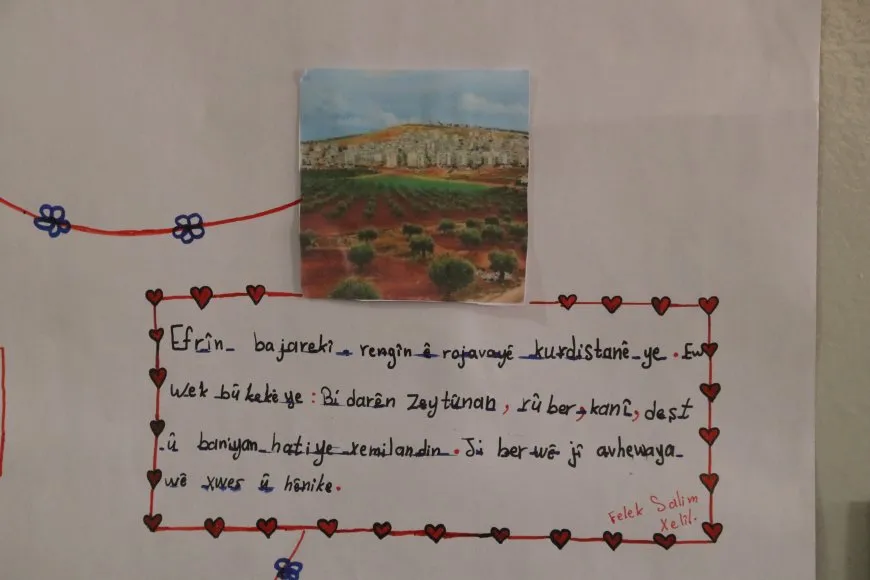 Efrîn bajarekî rengîn ê rojavayê kurdistanê ye. Ew
wek bûkekê ye : Bi darên Zeytûnan, rûber, kanî, deşt
û baniyan hatiye xemilandin. Ji ber wê jî avhewaya
wê xweş û hênike.
Felek Salim
Xelîl.